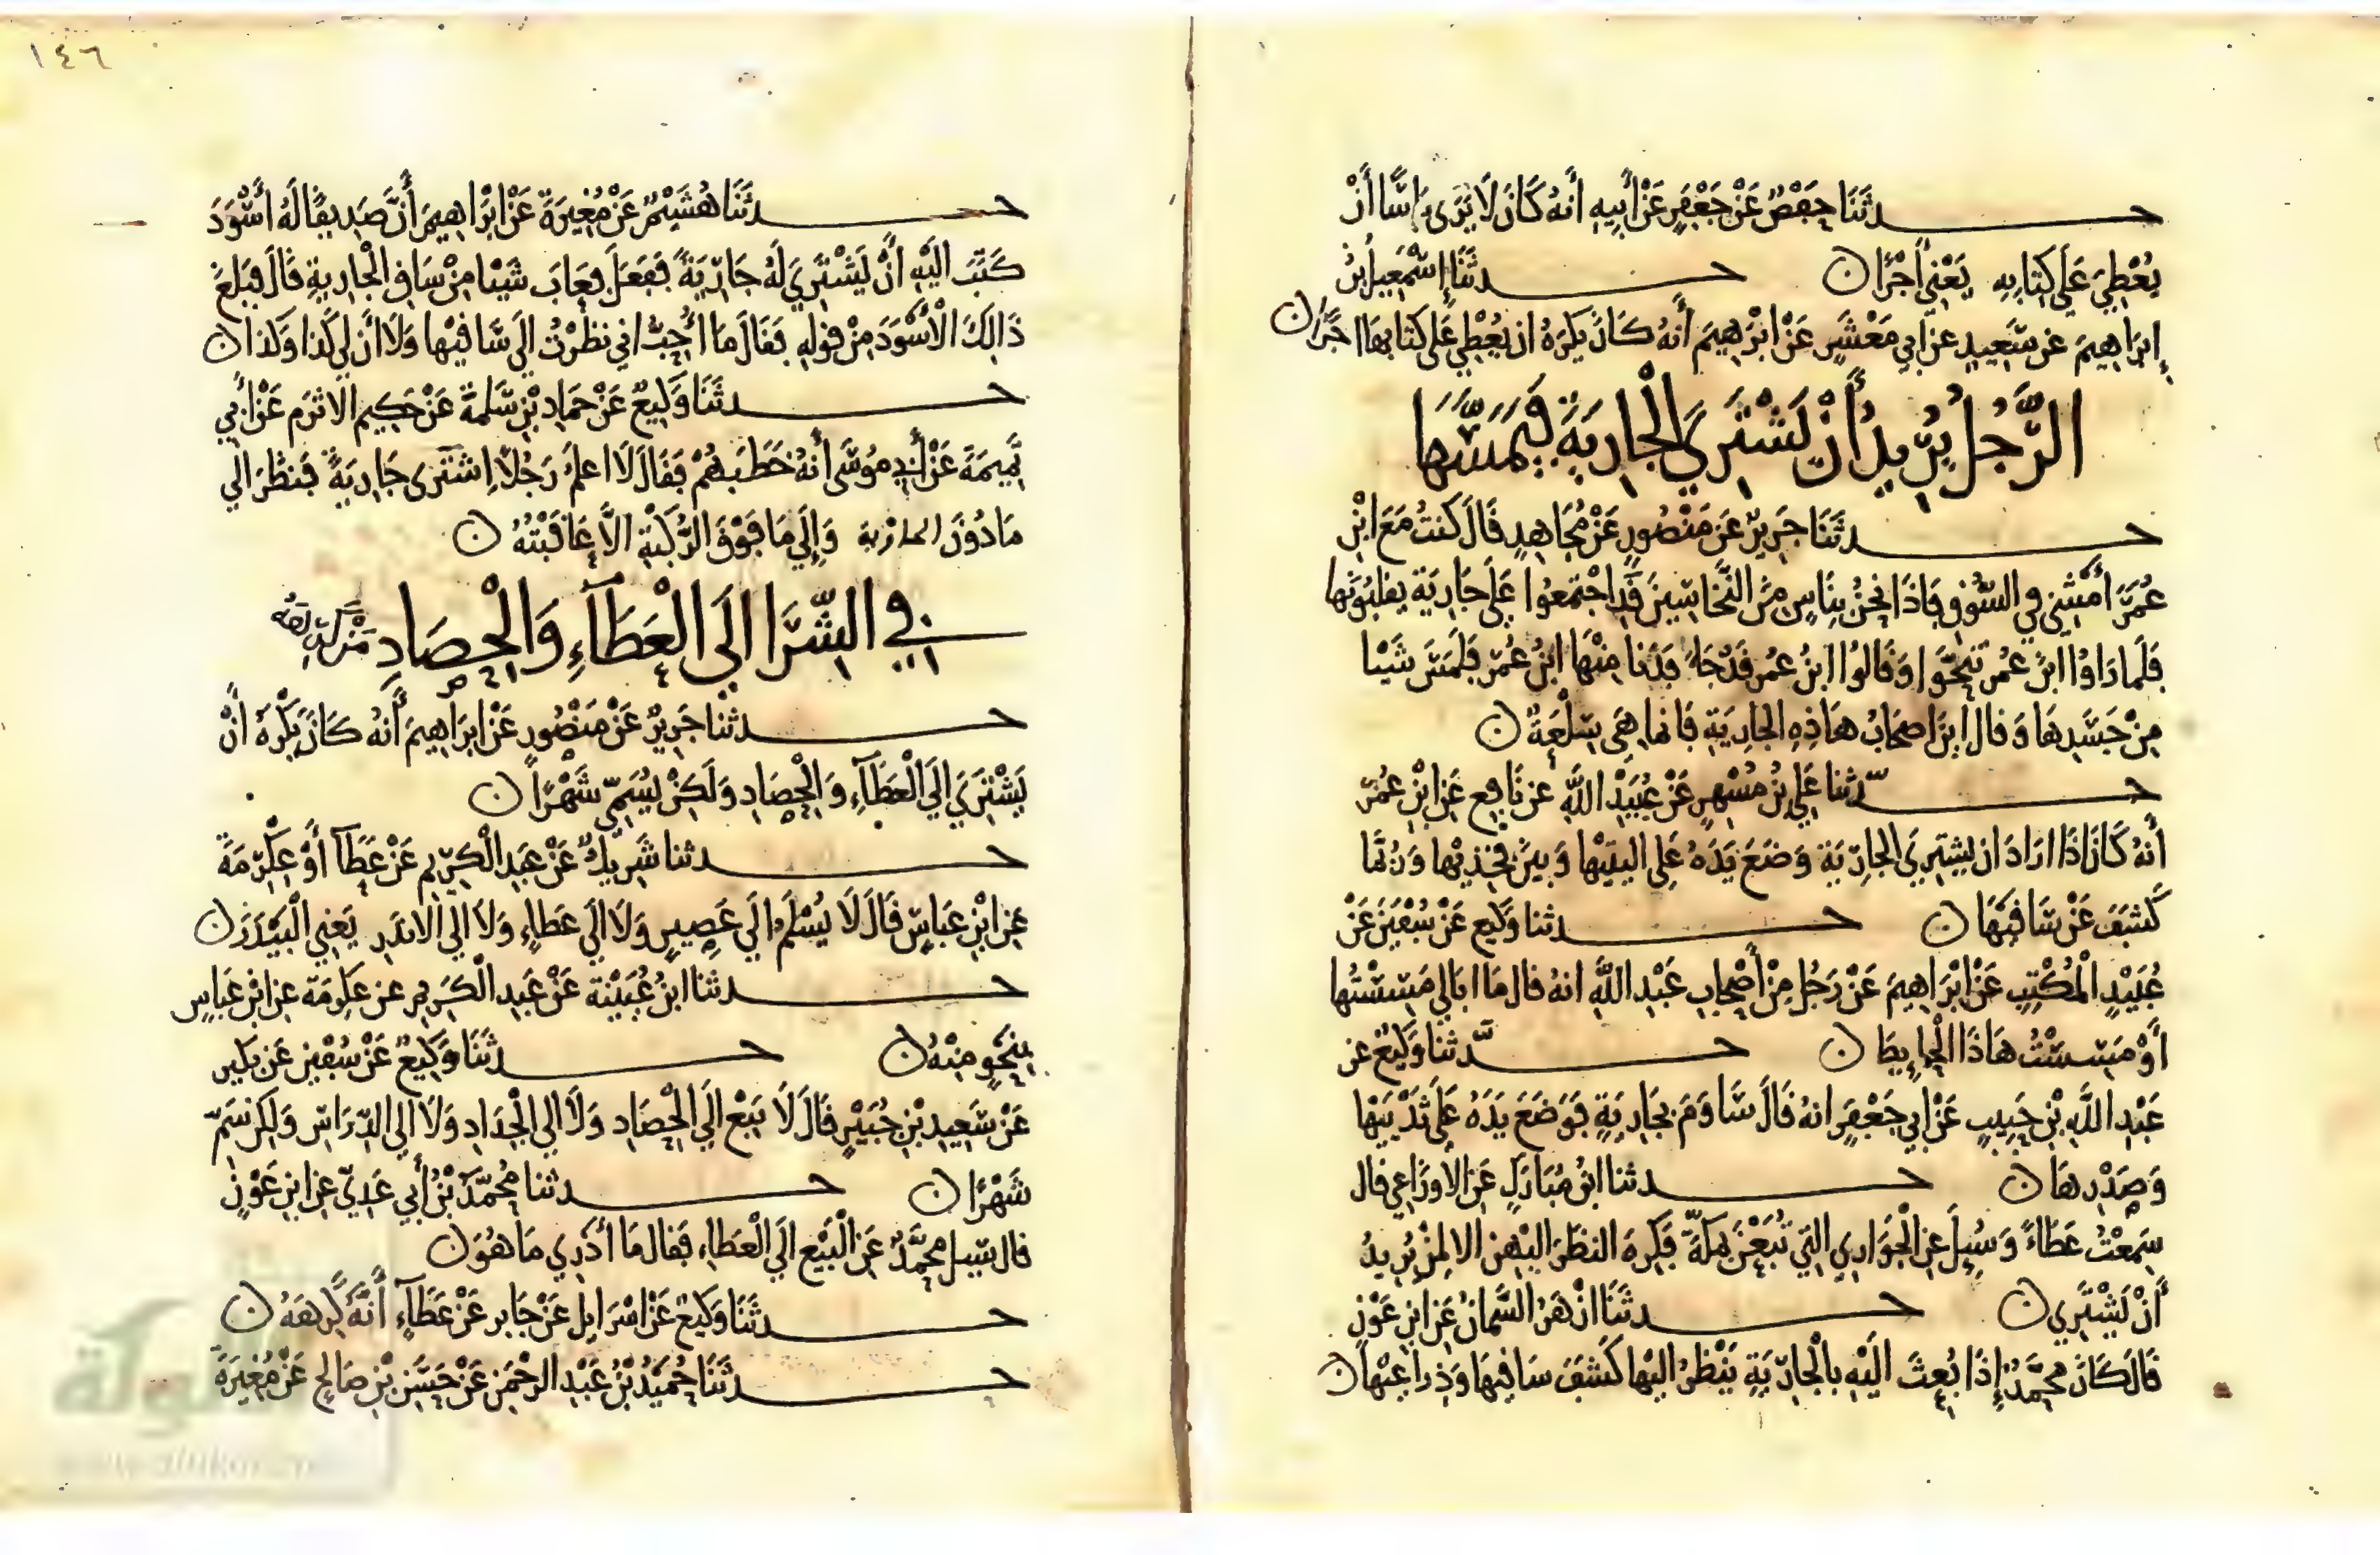 حدثنا حفص عن جعفر عن أبيه أنه كان لا يرى بأسا أن
يعطي على كتابه يعني أجرا ن حدثنا إسمعيل بن
إبراهيم عن سعيد عن أبي معشر عن إبرهيم أنه كان يكره ان يعطي على كتابها اجرا ن
الرجل يريد أن يشتري الجارية فيمسها
حدثنا جرير عن منصور عن مجاهد قال كنت مع ابن
عمر أمشي في السوق فاذا نحن بناس من النخاسين قد اجتمعوا على جارية يقلبونها
فلما راوا ابن عمر تنحوا وقالوا ابن عمر قد جا فدنا منها ابن عمر فلمس شيا
من جسدها وقال اين اصحاب هاذه الجارية فانما هي سلعة ن
حدثنا علي بن مسهر عن عبيد الله عن نافع عن ابن عمر
أنه كان إذا اراد ان يشتري الجارية وضع يده على اليتيها وبين فخذيها وربما
كشف عن ساقيها ن حدثنا وكيع عن سفين عن
عبيد المكتب عن إبراهيم عن رجل من أصحاب عبد الله انه قال ما ابالي مسستها
أو مسست هاذا الحايط ن حدثنا وكيع عن
عبد الله بن حبيب عن أبي جعفر انه قال ساوم بجارية فوضع يده على ثدييها
وصدرها ن حدثنا ابن مبارك عن الاوزاعي قال
سمعت عطاء وسيل عن الجواري التي تبعن بمكة فكره النظر اليهن الا لمن يريد
أن يشتري ن حدثنا ازهر السمان عن ابن عون
قال كان محمد إذا بعث اليه بالجارية ينظر اليها كشف ساقيها وذراعيها ن
١٤٦
حدثنا هشيم عن مغيرة عن إبراهيم أن صديقا له أسود
كتب اليه أن يشتري له جارية ففعل فعاب شيا من ساق الجارية قال فبلغ
ذالك الأسود من قوله فقال ما أحب اني نظرت الى ساقيها ولا أن لي كذا وكذا ن
حدثنا وكيع عن حماد بن سلمة عن حكيم الاثرم عن أبي
تميمة عن أبي موسى أنه خطبهم فقال لا اعلم رجلا إشترى جارية فنظر الى
ما دون الجارية وإلى ما فوق الركبة الا عاقبته ن
في الشرا الى العطاء والحصاد من كرهه
حدثنا جرير عن منصور عن ابراهيم أنه كان يكره أن
يشتري الى العطاء والحصاد ولكن يسمي شهرا ن
حدثنا شريك عن عبد الكريم عن عطآ أو عكرمة
عن ابن عباس قال لا يسلم الى عصير ولا الى عطاء ولا الى الاندر يعني البيدر ن
حدثنا ابن عيينة عن عبد الكريم عن عكرمة عن ابن عباس
بنحو منه ن حدثنا وكيع عن سفين عن بكير
عن سعيد بن جبير قال لا يبع الى الحصاد ولا الى الجداد ولا الى الدراس ولكن سم
شهرا ن حدثنا محمد بن أبي عدي عن ابن عون
قال سيل محمد عن البيع الى العطاء فقال ما أدري ما هو ن
حدثنا وكيع عن اسرايل عن جابر عن عطآء أنه كرهه ن
حدثنا حميد بن عبد الرحمن عن حسن بن صالح عن مغيرة
الألوكة